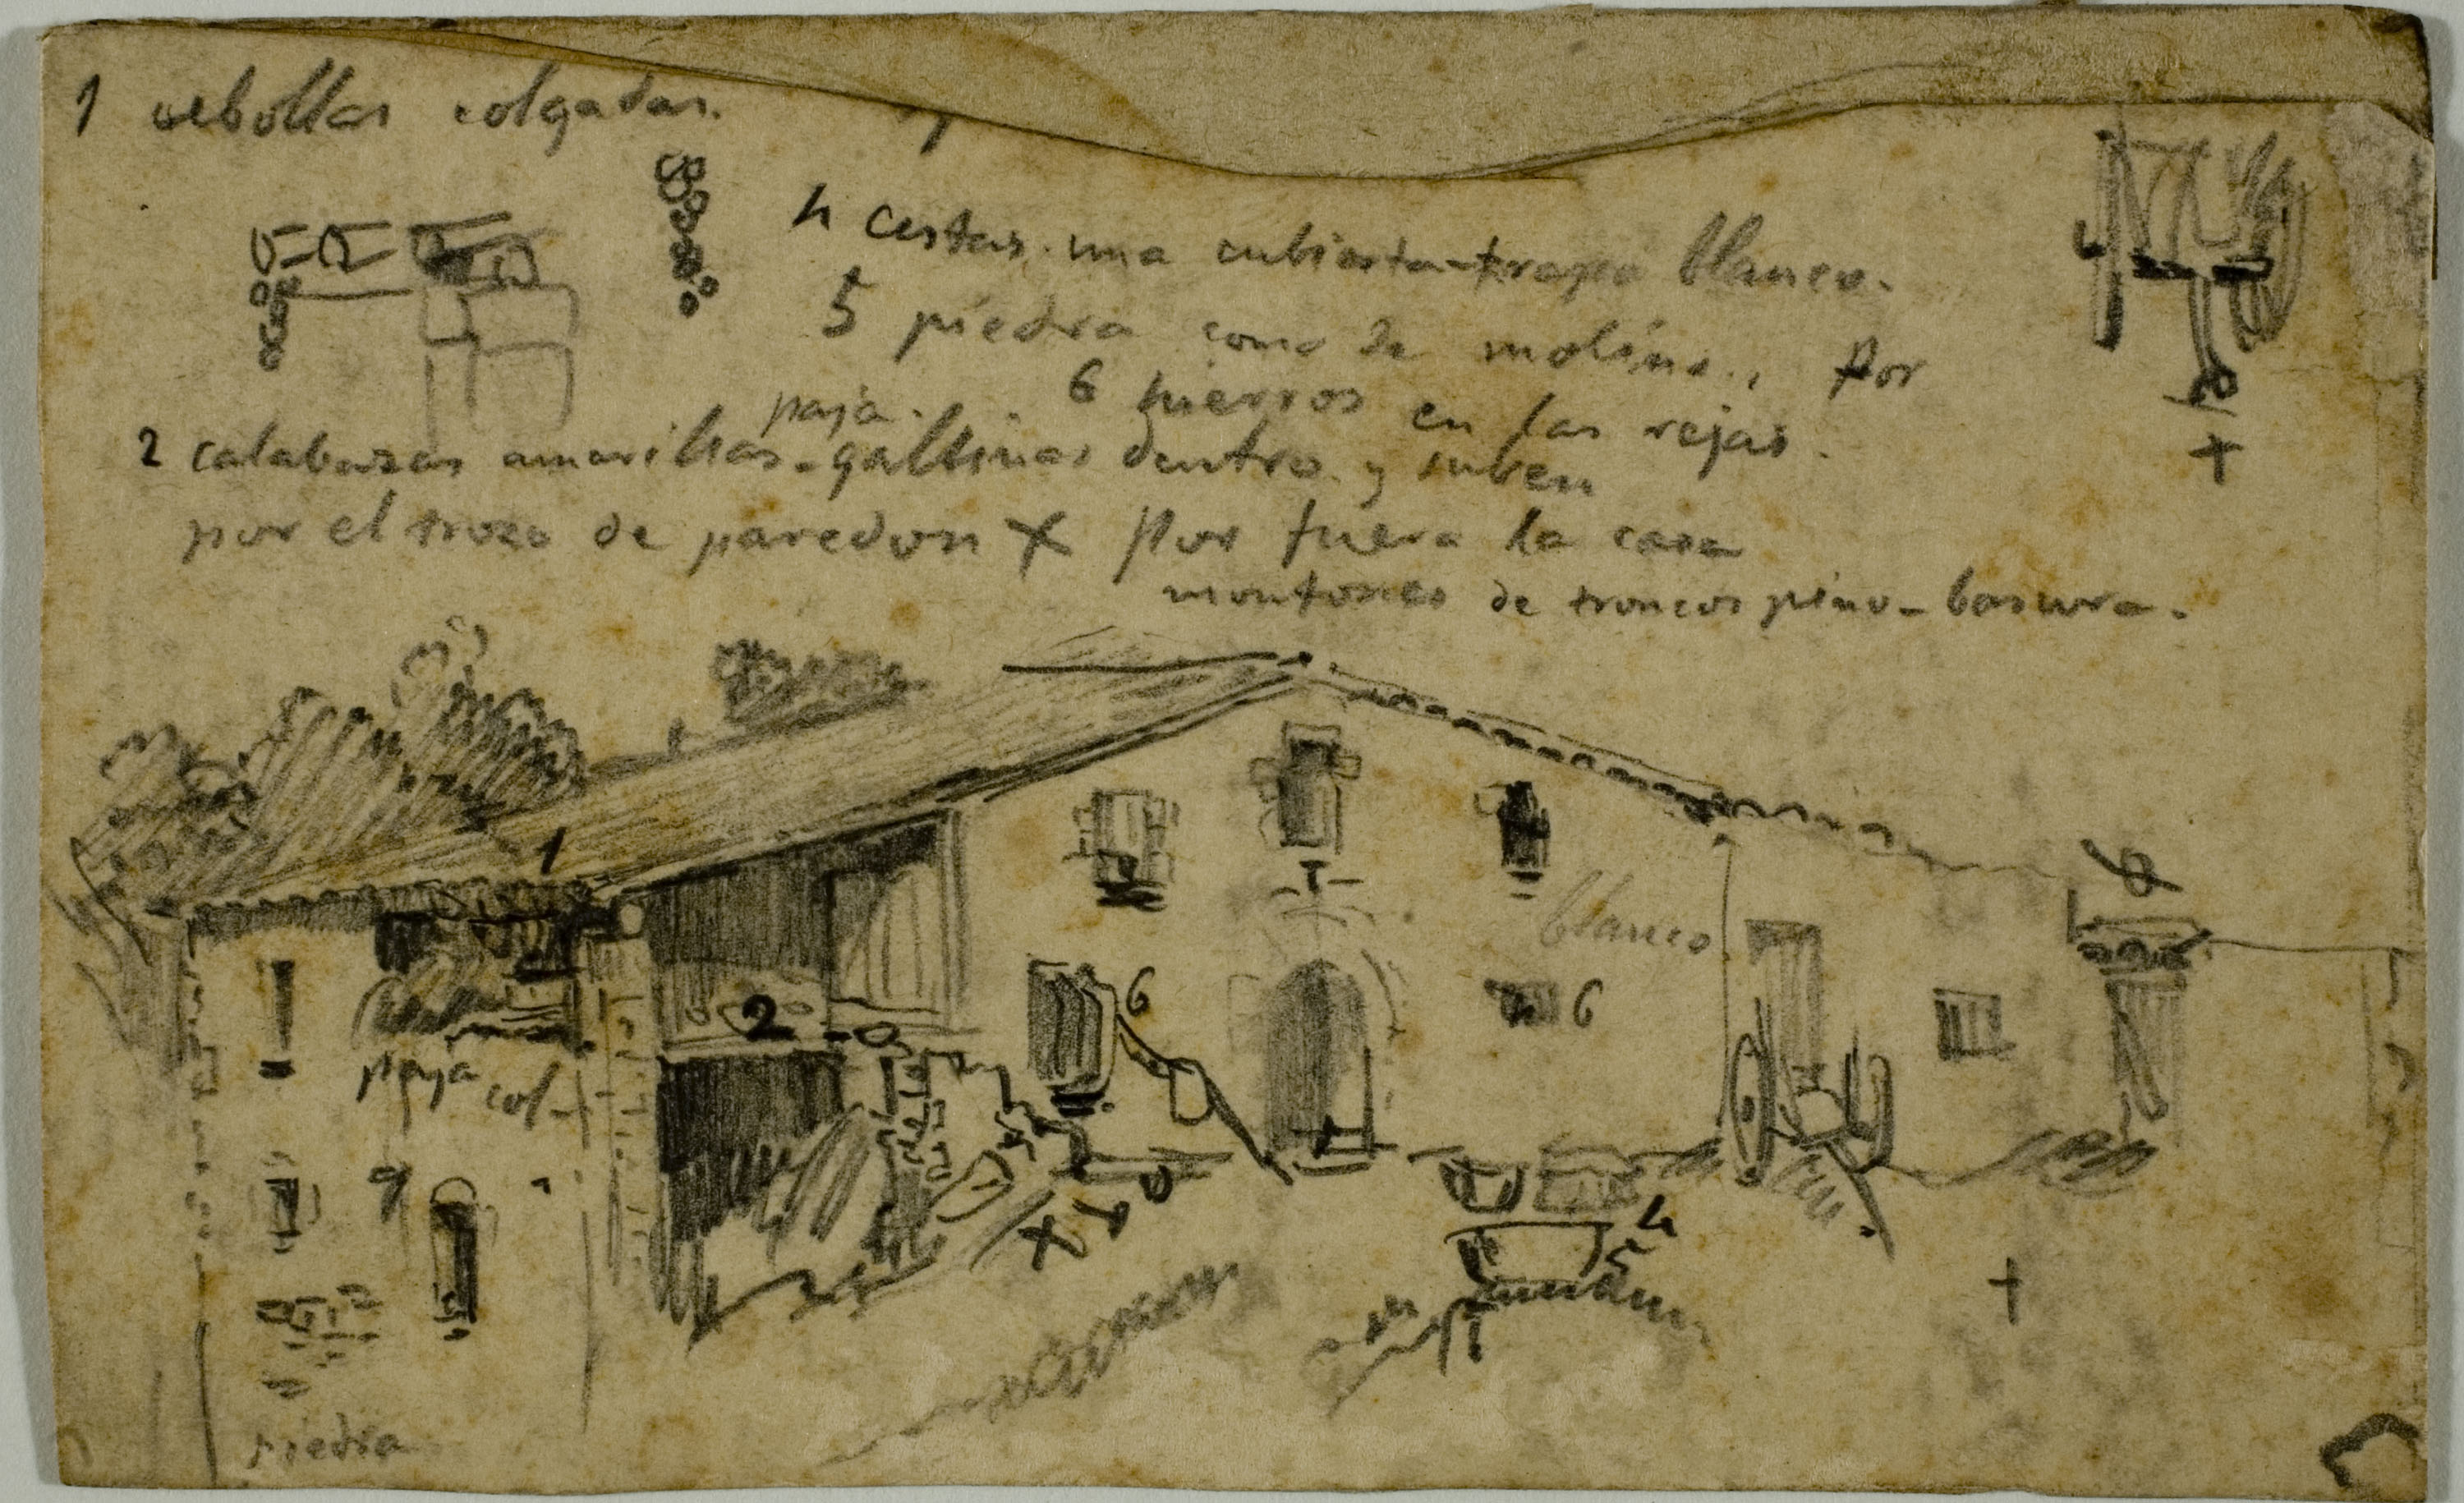 1 cebollas colgadas.
4 cestas. una cubierta-trapo blanco.
5 piedra como de molino., Por
paja. 6 hierros en las rejas.
2 calabazas amarillas-gallinas dentro y suben
por el trozo de paredon X Por fuera la casa
montones de troncos pino-basura.
X
1
blanco
2
6
6
paja
col-
X
4
5
piedra